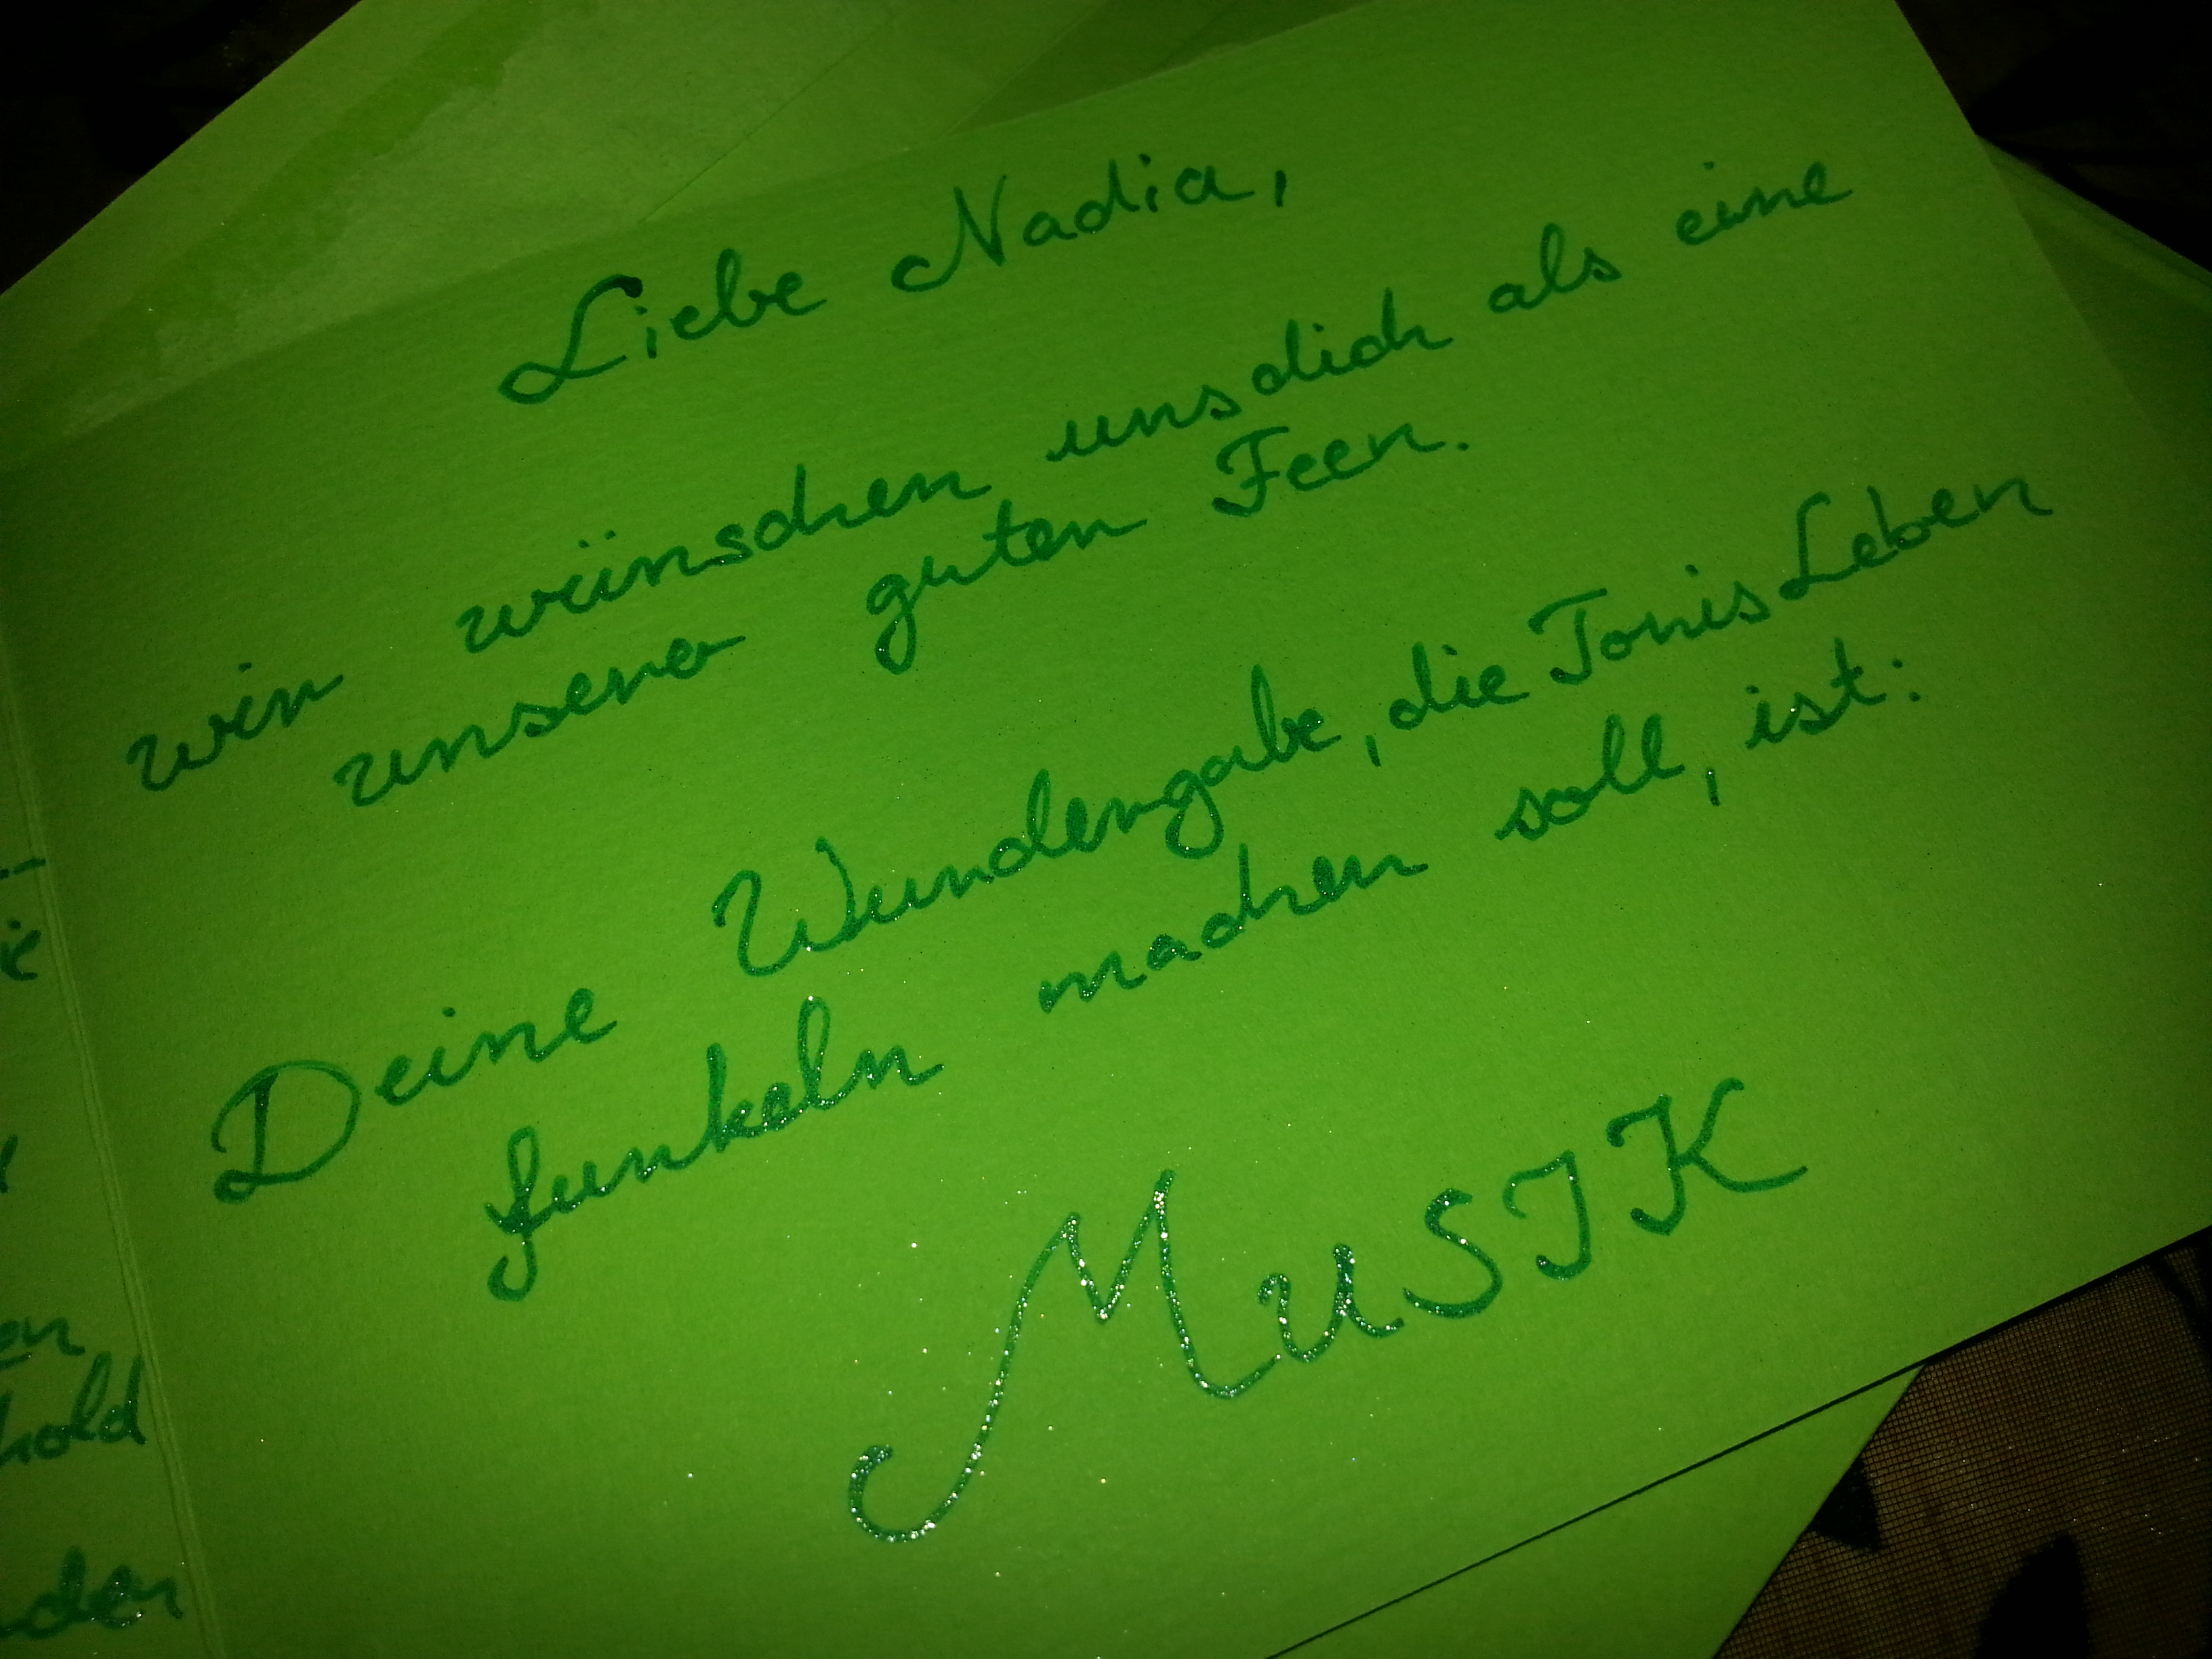 Liebe Nadia,
wir wünschen uns dich als eine
unserer guten Feen.
Deine Wundergabe, die Tonis Leben
funkeln machen soll, ist:
MUSIK
ie
en
hold
der